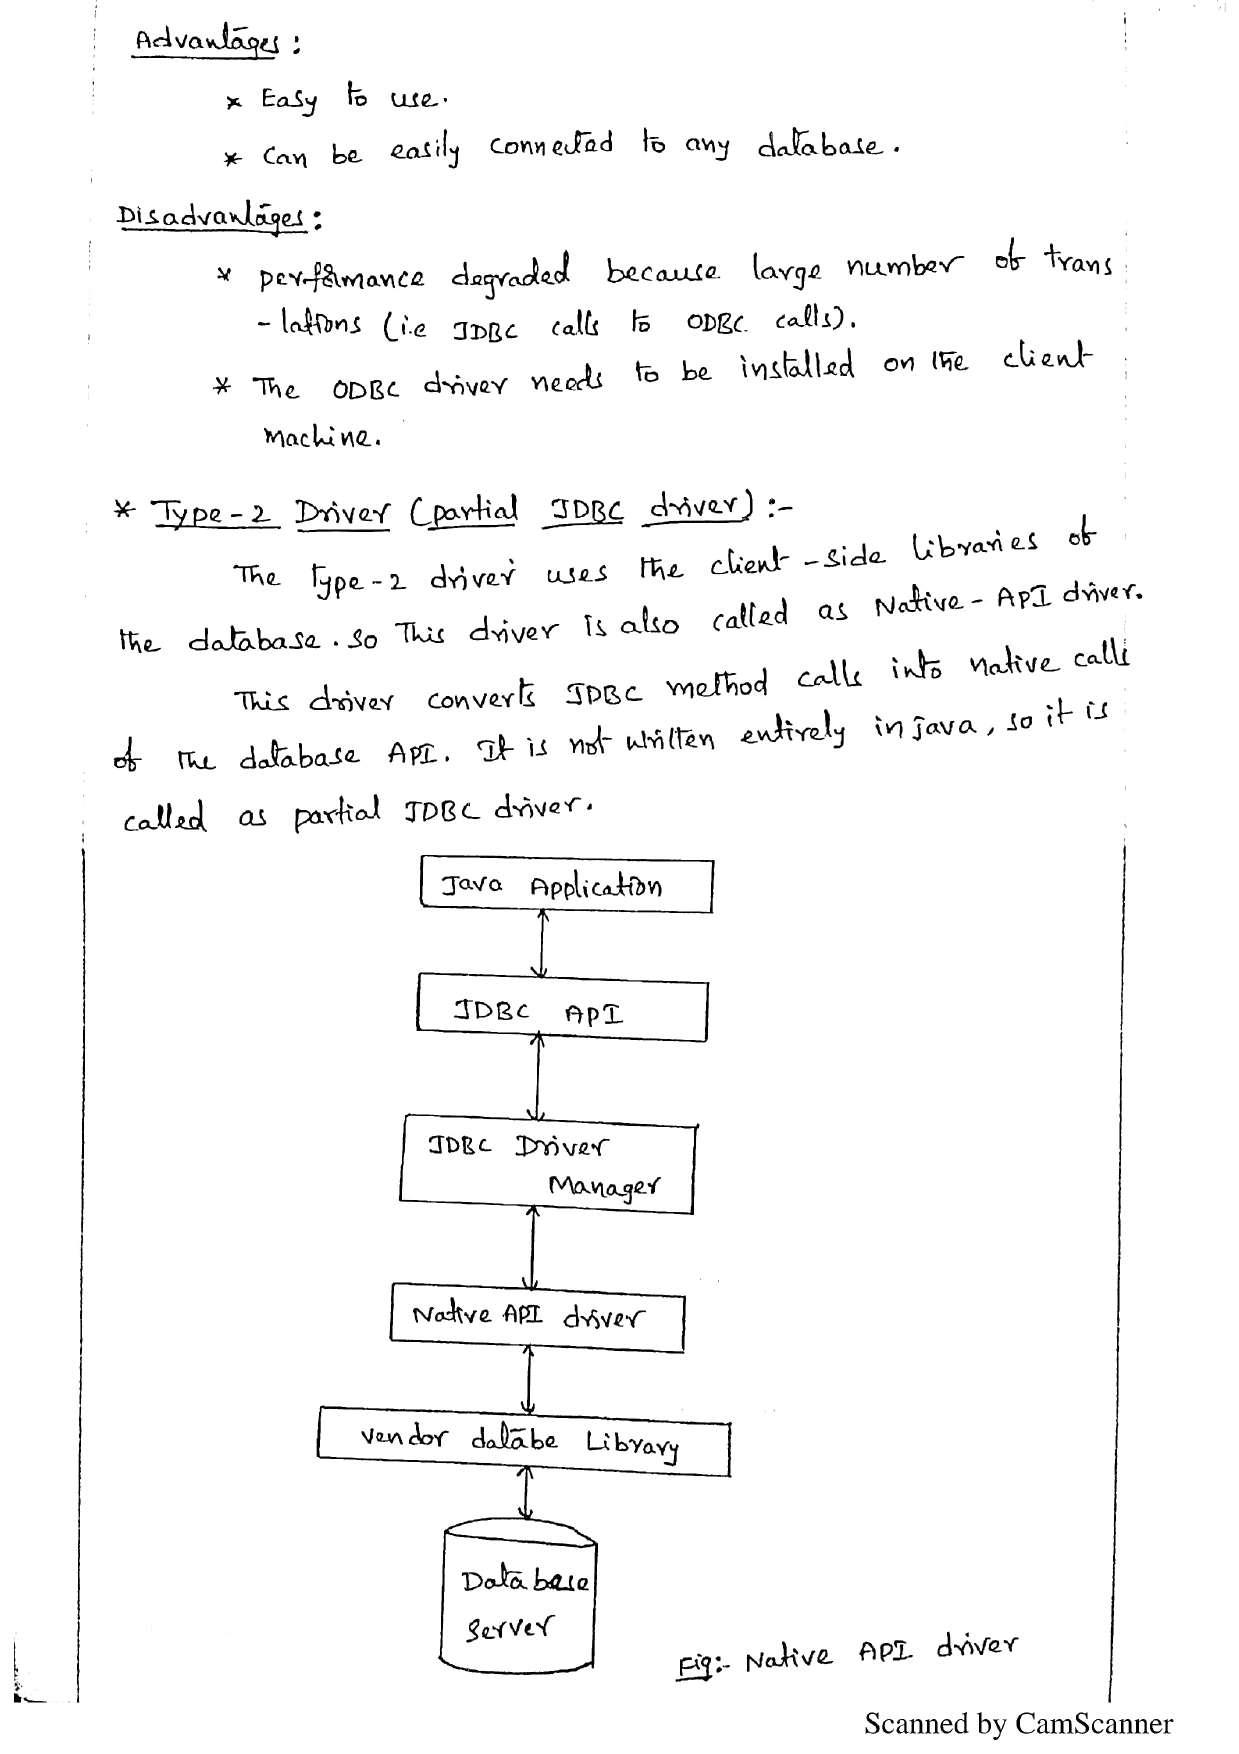 Advantages :
* Easy to use.
* Can be easily connected to any database.
Disadvantages :
* performance degraded because large number of trans
- lations (i.e JDBC calls to ODBC calls).
* The ODBC driver needs to be installed on the client
Machine.
* Type-2 Driver (partial JDBC driver) :-
The Type-2 driver uses the client-side libraries of
the database. so This driver is also called as Native-API driver.
This driver converts JDBC method calls into native calls
of the database API. It is not written entirely in java, so it is
called as partial JDBC driver.
Java Application
JDBC API
JDBC Driver
Manager
Native API driver
vendor databe Library
Database
Server
Fig:- Native API driver
Scanned by CamScanner